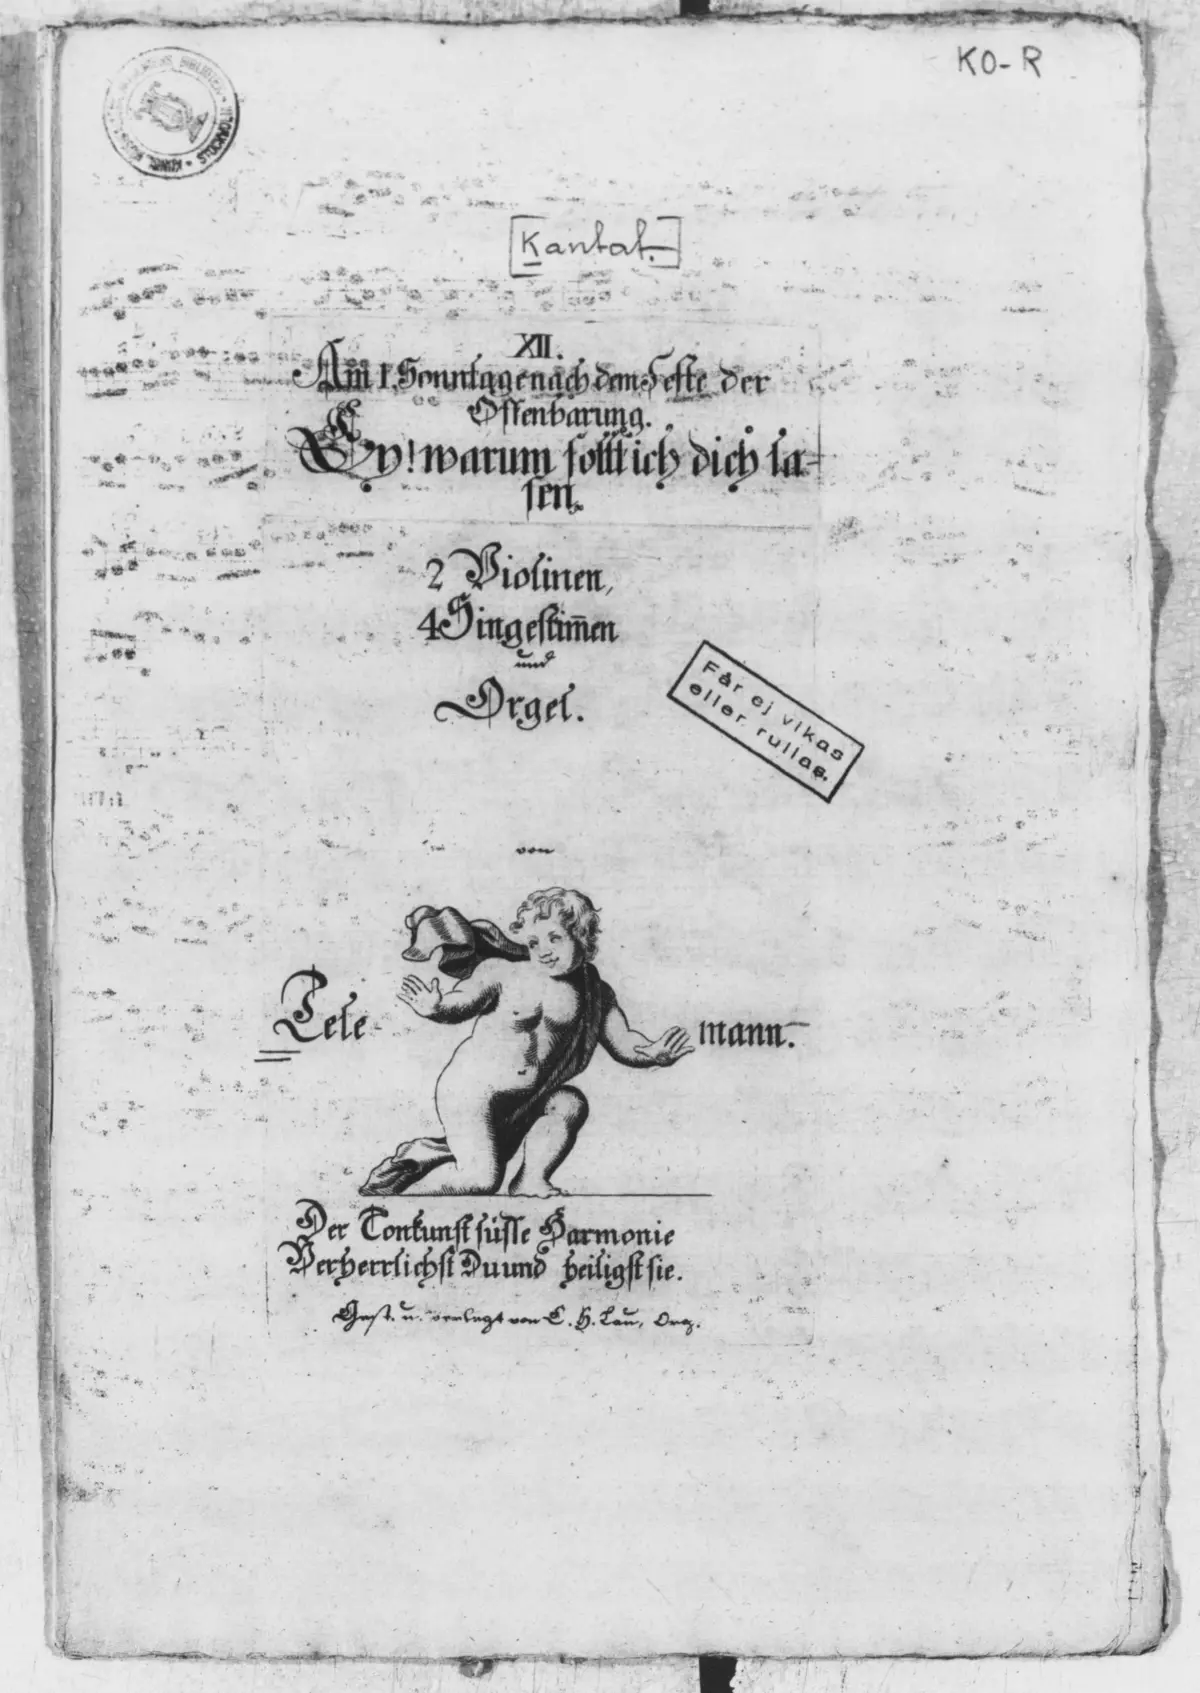 KO-R
[Kantat.]
XII.
Am 1. Sonntage nach dem Feste der
Offenbarung.
Ey! warum sollt ich dich la-
ssen.
2 Violinen,
4 Singestim̄en
und
Orgel.
Får ej vikas
eller rullas.
von
Tele-
mann.
Der Tonkunst süsse Harmonie
Verherrlichst Du und heiligst sie.
Gest. u. verlegt von C. H. Lau, Org.